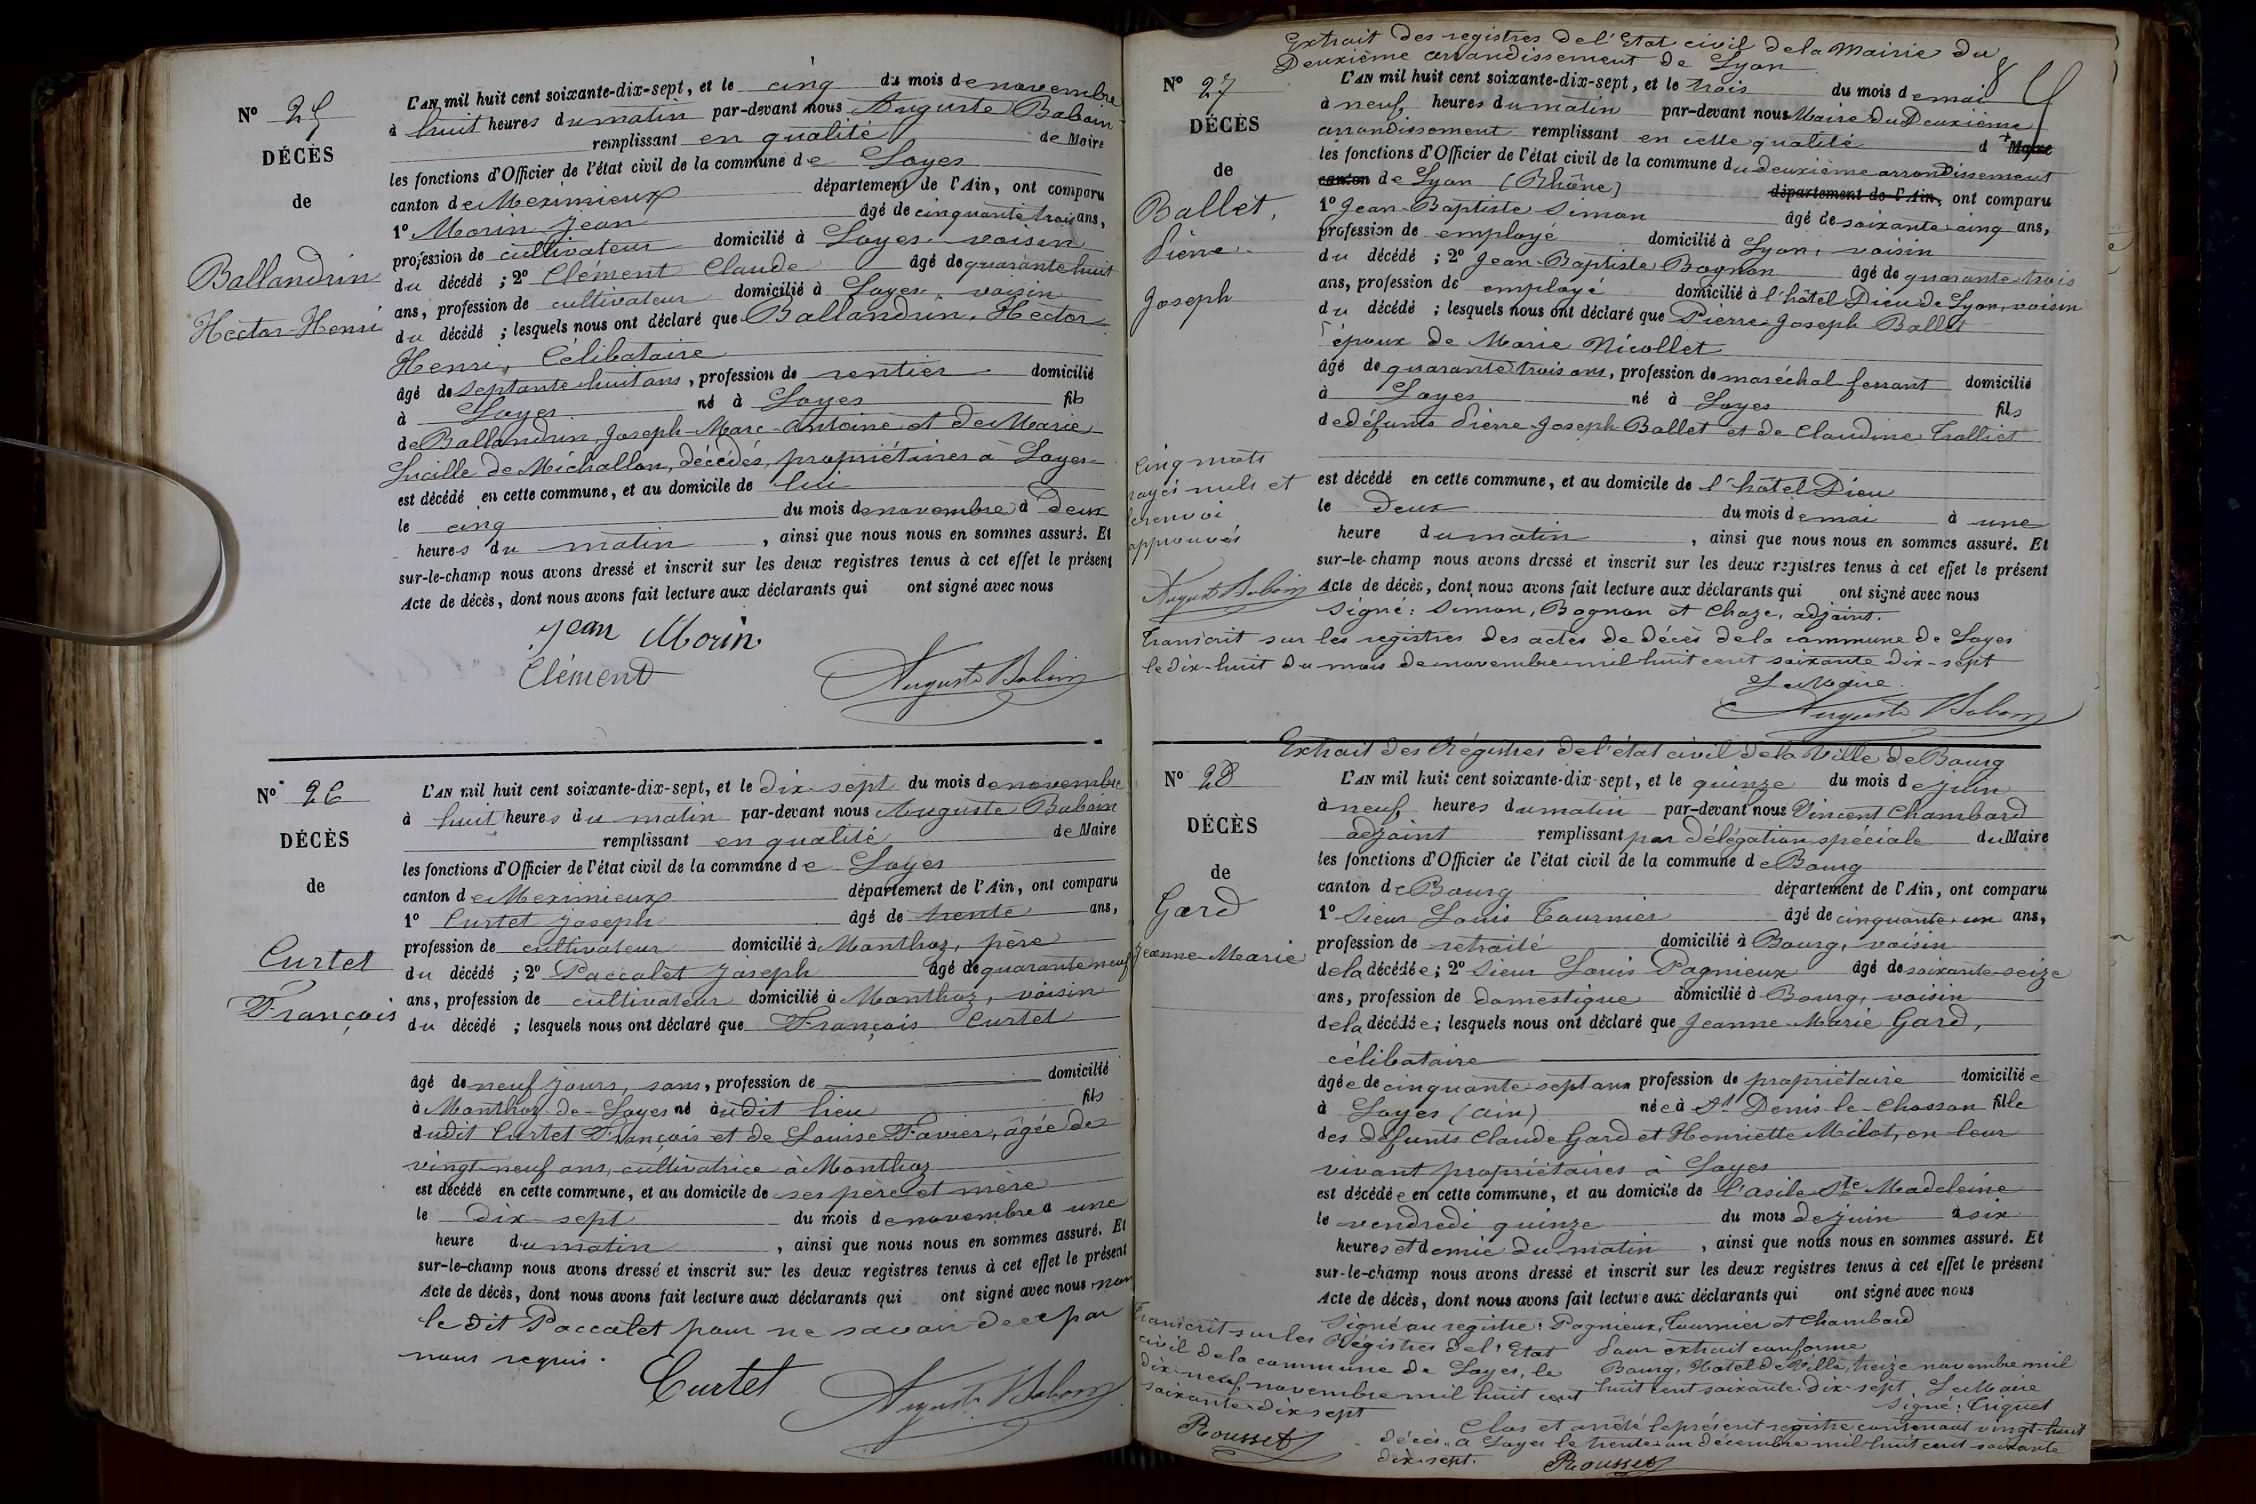 Nº 25
DÉCÈS
de
Ballandrin
Hector-Henri
L'AN mil huit cent soixante-dix-sept, et le cinq du mois de novembre
à huit heures du matin par-devant nous Auguste Baboin
remplissant en qualité de Maire
les fonctions d'Officier de l'état civil de la commune de Loyes
canton de Meximieux département de l'Ain, ont comparu
1º Morin Jean âgé de cinquante trois ans,
profession de cultivateur domicilié à Loyes, voisin
du décédé ; 2º Clément Claude âgé de quarante huit
ans, profession de cultivateur domicilié à Loyes, voisin
du décédé ; lesquels nous ont déclaré que Ballandrin, Hector
Henri, Célibataire
âgé de septante huit ans, profession de rentier domicilié
à Loyes né à Loyes fils
de Ballandrin, Joseph-Marc-Antoine et de Marie
Lucille de Michallon, décédés, propriétaires à Loyes
est décédé en cette commune, et au domicile de lui
le cinq du mois de novembre à deux
heures du matin, ainsi que nous nous en sommes assuré. Et
sur-le-champ nous avons dressé et inscrit sur les deux registres tenus à cet effet le présent
Acte de décès, dont nous avons fait lecture aux déclarants qui ont signé avec nous
Jean Morin
Clément Auguste Baboin
Nº 26
DÉCÈS
de
Curtet
François
L'AN mil huit cent soixante-dix-sept, et le dix-sept du mois de novembre
à huit heures du matin par-devant nous Auguste Baboin
remplissant en qualité de Maire
les fonctions d'Officier de l'état civil de la commune de Loyes
canton de Meximieux département de l'Ain, ont comparu
1º Curtet Joseph âgé de trente ans,
profession de cultivateur domicilié à Monthoz, père
du décédé ; 2º Paccalet Joseph âgé de quarante neuf
ans, profession de cultivateur domicilié à Monthoz, voisin
du décédé ; lesquels nous ont déclaré que François Curtet
âgé de neuf jours, sans, profession de domicilié
à Monthoz-de-Loyes né audit lieu fils
dudit Curtet François et de Louise Favier, âgée de
vingt-neuf ans, cultivatrice à Monthoz
est décédé en cette commune, et au domicile de ses père et mère
le dix-sept du mois de novembre à une
heure du matin, ainsi que nous nous en sommes assuré. Et
sur-le-champ nous avons dressé et inscrit sur les deux registres tenus à cet effet le présent
Acte de décès, dont nous avons fait lecture aux déclarants qui ont signé avec nous non
le dit Paccalet pour ne savoir de ce par
nous requis.
Curtet Auguste Baboin
Extrait des registres de l'Etat civil de la Mairie du
Deuxième arrondissement de Lyon
Nº 27
DÉCÈS
de
Ballet,
Pierre
Joseph
L'AN mil huit cent soixante-dix-sept, et le trois du mois de mai
à neuf heures du matin par-devant nous Maire du Deuxième
arrondissement remplissant en cette qualité d Maire
les fonctions d'Officier de l'état civil de la commune du deuxième arrondissement
canton de Lyon (Rhône) département de l'Ain, ont comparu
1º Jean-Baptiste Simon âgé de soixante cinq ans,
profession de employé domicilié à Lyon, voisin
du décédé ; 2º Jean-Baptiste Bognon âgé de quarante trois
ans, profession de employé domicilié à l'hôtel Dieu de Lyon, voisin
du décédé ; lesquels nous ont déclaré que Pierre Joseph Ballet
époux de Marie Nicollet
âgé de quarante trois ans, profession de maréchal ferrant domicilié
à Loyes né à Loyes fils
de défunts Pierre-Joseph Ballet et de Claudine Trolliet
est décédé en cette commune, et au domicile de l'hôtel Dieu
le deux du mois de mai à une
heure du matin, ainsi que nous nous en sommes assuré. Et
sur-le-champ nous avons dressé et inscrit sur les deux registres tenus à cet effet le présent
Acte de décès, dont nous avons fait lecture aux déclarants qui ont signé avec nous
Signé : Simon, Bognon et Chaze, adjoint.
Cinq mots
rayés nuls et
le renvoi
approuvés
Auguste Baboin
Transcrit sur les registres des actes de décès de la commune de Loyes
le dix-huit du mois de novembre mil huit cent soixante dix-sept
Le Maire
Auguste Baboin
Extrait des Régistres de l'état civil de la Ville de Bourg
Nº 28
DÉCÈS
de
Gard
Jeanne-Marie
L'AN mil huit cent soixante-dix-sept, et le quinze du mois de juin
à neuf heures du matin par-devant nous Vincent Chambard
adjoint remplissant par délégation spéciale du Maire
les fonctions d'Officier de l'état civil de la commune de Bourg
canton de Bourg département de l'Ain, ont comparu
1º Sieur Louis Tournier âgé de cinquante-un ans,
profession de retraité domicilié à Bourg, voisin
de la décédée ; 2º Sieur Louis Pagnieux âgé de soixante-seize
ans, profession de domestique domicilié à Bourg, voisin
de la décédée ; lesquels nous ont déclaré que Jeanne-Marie Gard,
célibataire
âgée de cinquante-sept ans profession de propriétaire domiciliée
à Loyes (Ain) née à St Denis-le-Chosson fille
des défunts Claude Gard et Henriette Milot, en leur
vivant propriétaires à Loyes
est décédée en cette commune, et au domicile de l'asile Ste Madeleine
le vendredi quinze du mois de juin à six
heures et demie du matin, ainsi que nous nous en sommes assuré. Et
sur-le-champ nous avons dressé et inscrit sur les deux registres tenus à cet effet le présent
Acte de décès, dont nous avons fait lecture aux déclarants qui ont signé avec nous
Signé au registre : Pagnieux, Tournier et Chambard
Pour extrait conforme
Bourg, Hotel de Ville, treize novembre mil
huit cent soixante-dix-sept. Le Maire
Signé : Triquet
Transcrit sur les Régistres de l'Etat
civil de la commune de Loyes, le
dix-neuf novembre mil huit cent
soixante-dix sept
Rousset
Clos et arrêté le présent registre contenant vingt-huit
décès, à Loyes le trente un décembre mil huit cent soixante
dix-sept. Rousset